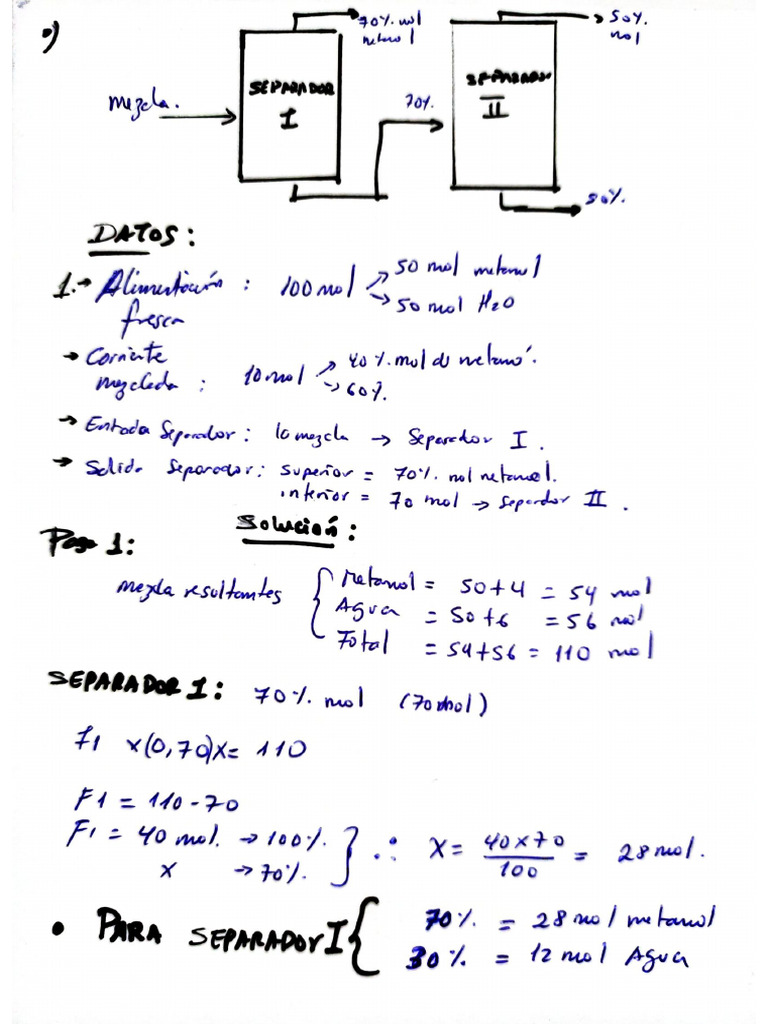 •)
70% mol
metanol
50%
mol
SEPARADOR
I
SEPARADOR
II
mezcla.
70%
50%.
DATOS:
1.→ Alimentación : 100 mol → 50 mol metanol
→ 50 mol H2O
fresca
→ Corriente
mezclada : 10 mol → 40%. mol de metano.
→ 60%.
→ Entrada Separador: la mezcla → Separador I.
→ Salida Separador: superior = 70%. mol metanol.
inferior = 70 mol → Separador II.
Solución:
Paso 1:
mezcla resultantes { Metanol = 50+4 = 54 mol
Agua = 50+6 = 56 mol
Total = 54+56 = 110 mol
SEPARADOR 1: 70%. mol (70 mol)
F1 x(0,70)x= 110
F1 = 110-70
F1 = 40 mol. → 100%.
x → 70%. } ∴ X = 40x70/100 = 28 mol.
• PARA SEPARADOR I { 70%. = 28 mol metanol
30%. = 12 mol Agua